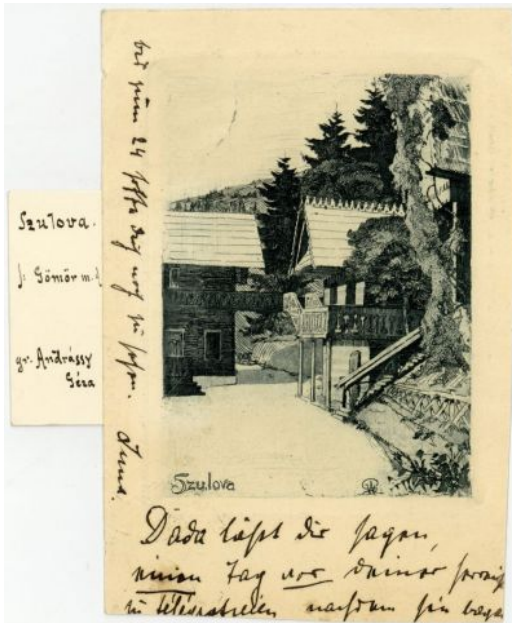 Szulova.
f: Gömör m.
gr. Andrássy
Géza
bis zum 24 hoffe dich noch zu sehen.
Szulova
Dada läßt dir sagen,
einen Tag vor deiner
zu telegrafieren nachdem sie